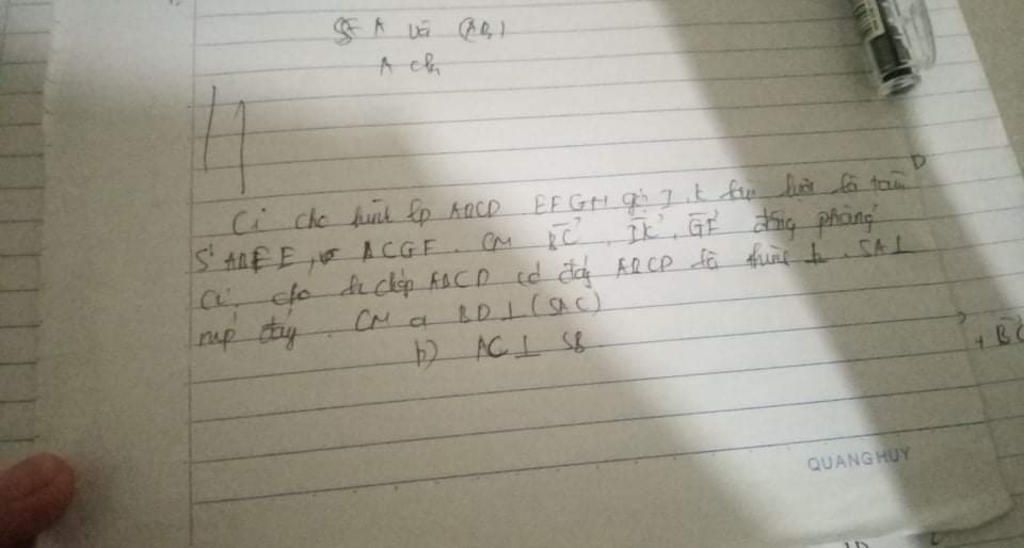 A và (AB,
A ch
D
Ci cho hình ABCD EFGH gọi I, K lần lượt là tâm
S' ABFE, ACGF. CM BC, IK, GF đồng phẳng
Ci, cho h chóp ABCD có đáy ABCD là hình SA⊥
mp đáy. CM a BD⊥(SAC)
b) AC⊥ SB
+ BC
QUANGHUY